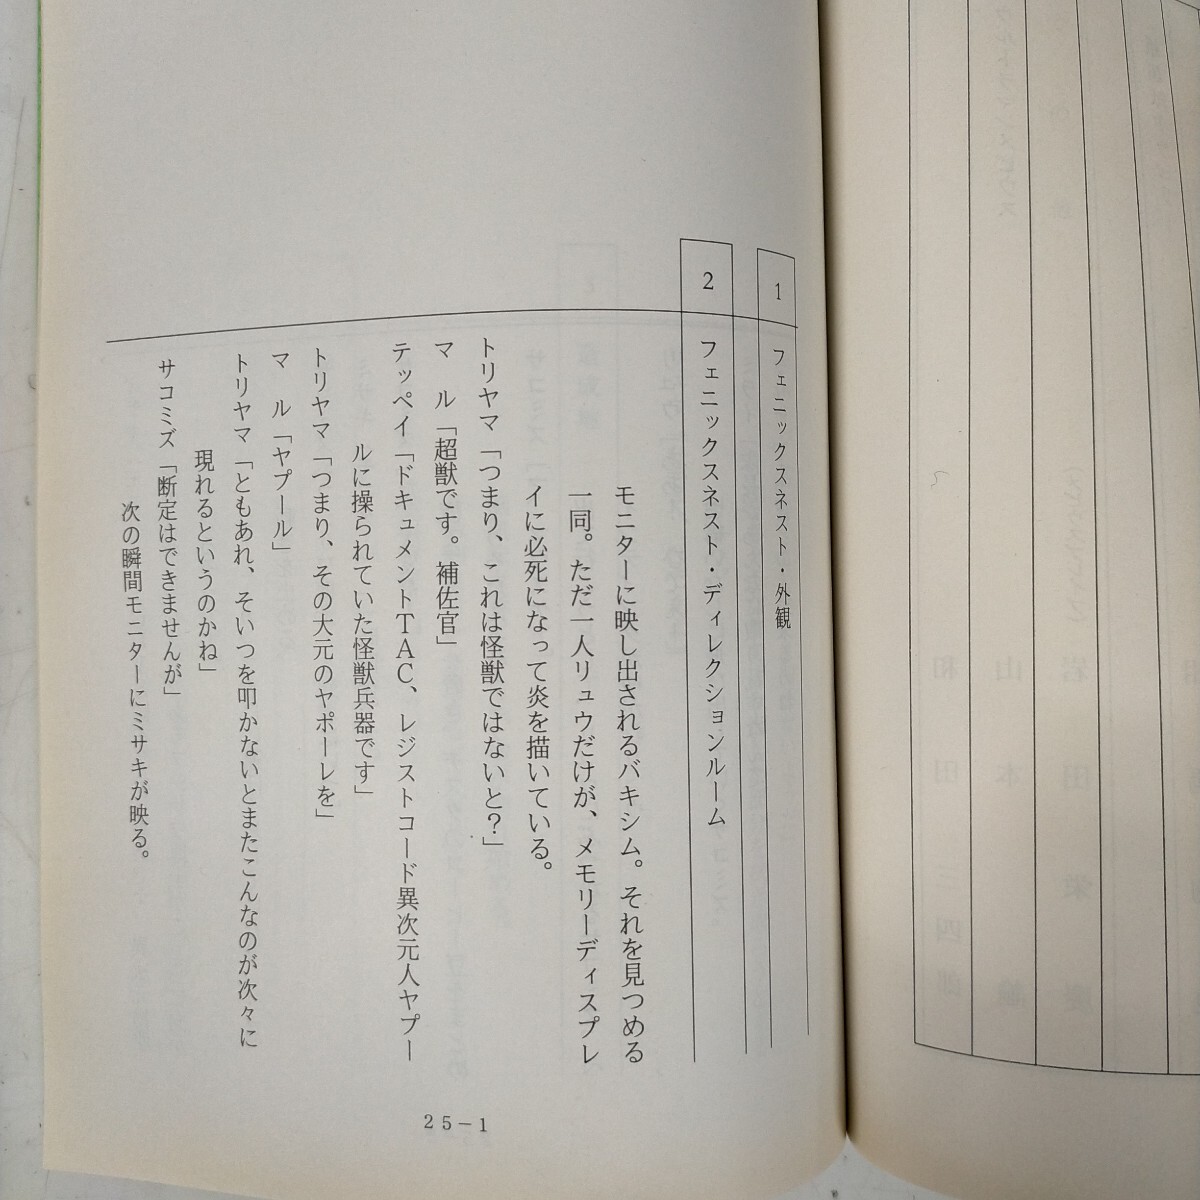 1 フェニックスネスト・外観
2 フェニックスネスト・ディレクションルーム
モニターに映し出されるバキシム。それを見つめる
一同。ただ一人リュウだけが、メモリーディスプレ
イに必死になって炎を描いている。
トリヤマ「つまり、これは怪獣ではないと？」
マ　ル「超獣です。補佐官」
テッペイ「ドキュメントTAC、レジストコード異次元人ヤプー
ルに操られていた怪獣兵器です」
トリヤマ「つまり、その大元のヤポーレを」
マ　ル「ヤプール」
トリヤマ「ともあれ、そいつを叩かないとまたこんなのが次々に
現れるというのかね」
サコミズ「断定はできませんが」
次の瞬間モニターにミサキが映る。
25－1